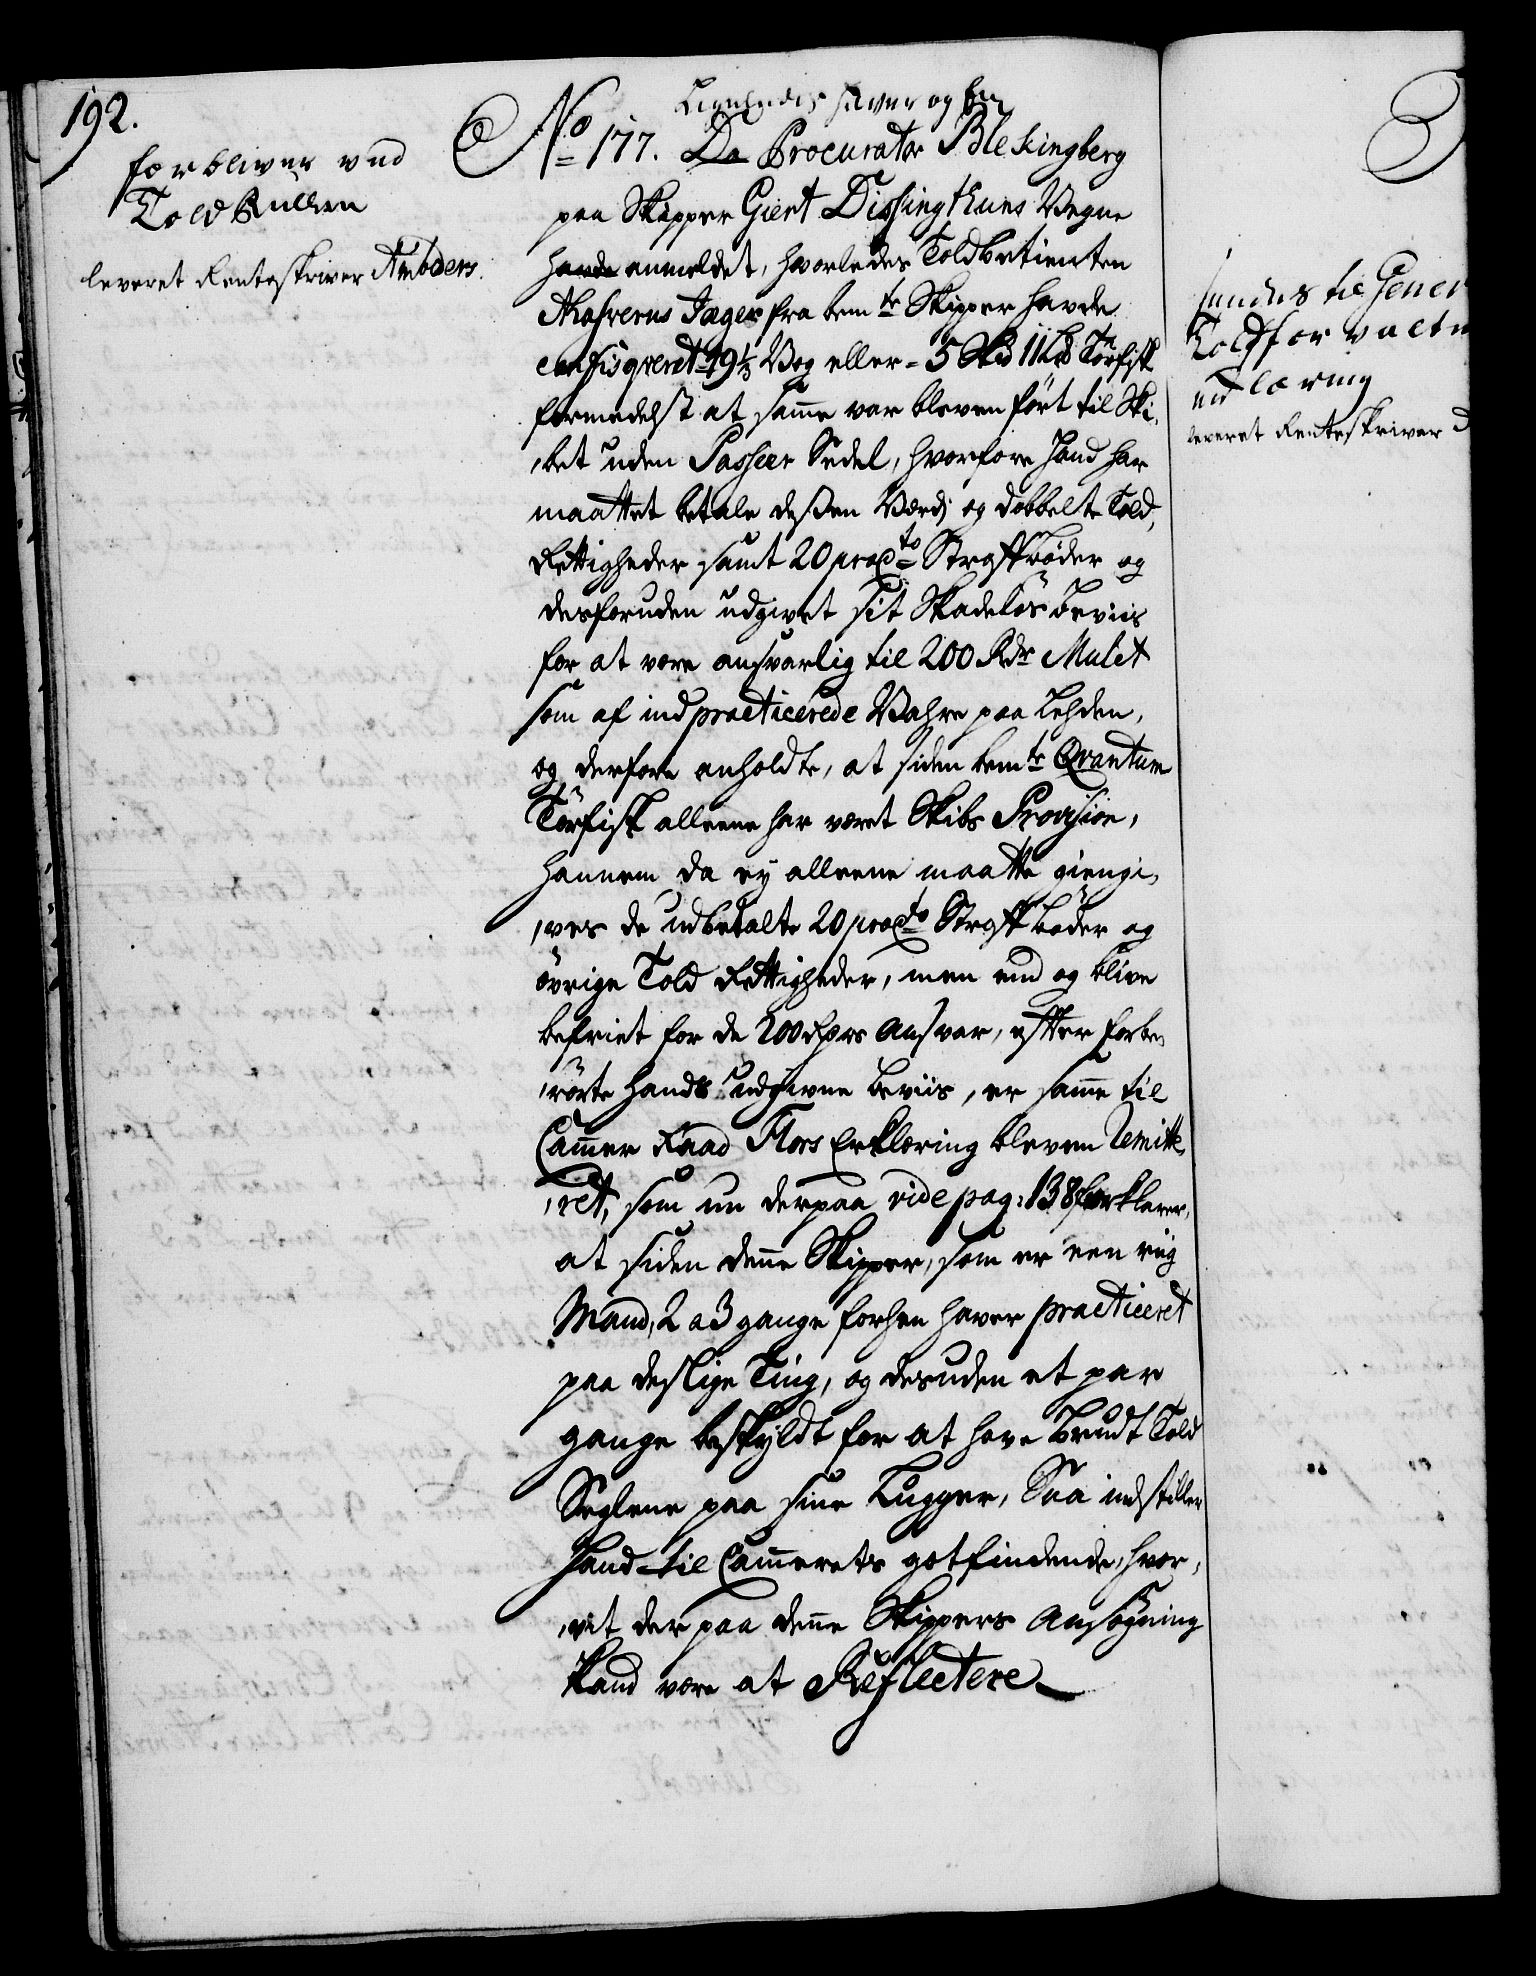 192.
forbliver ved
Told Rullen
leveret Renteskriver Anbders.
Ligeledes haver og
No 177. Da Procurator Blekingberg
paa Skipper Giert Dissingthuns Vegne
hafde anmeldet, hvorledes Toldbetienten
Ahasverus Jæger fra bemte Skipper havde
confisqveret 49⅓ Vog eller 5 Skd 11 Lb Törfisk
formedelst at samme var bleven fört til Ski,
,bet uden Passeer Sedel, hvorfore hand har
maattet betale dessen Værdj og dobbelte Told,
Rettigheder samt 20 procto Straffböder og
desforuden udgivet sit Skadelös Beviis
for at være ansvarlig til 200 Rdr Mulct
som af indpracticerede Vahre paa Lehden,
og derfore anholdte, at siden bemte Qvantum
Törfisk alleene har været Skibs Provision,
hannem da ey alleene maatte giengi,
,ves de udbetalte 20 procto Straff böder og
övrige Told Rettigheder, men end og blive
befriet for de 200 Rdrs Ansvar, efter forbe,
,rörte hands udgivne beviis, er samme til
Cammer Raad Flors Erklæring bleven Remitte,
,ret, som nu derpaa vide pag: 138 forklarer,
at siden denne Skipper, som er een riig
Mand, 2 a 3 gange forhen haver practiceret
paa deslige Ting, og desuden et par
gange beskyldt for at have brudt Told
Seglene paa sine Lugger, Saa indstiller
hand til Cammerets gotfindende, hvor,
,vit der paa denne Skippers Ansögning
kand være at Reflectere
sendes til Gener
Toldforvalt
udlæring
leveret Renteskriver